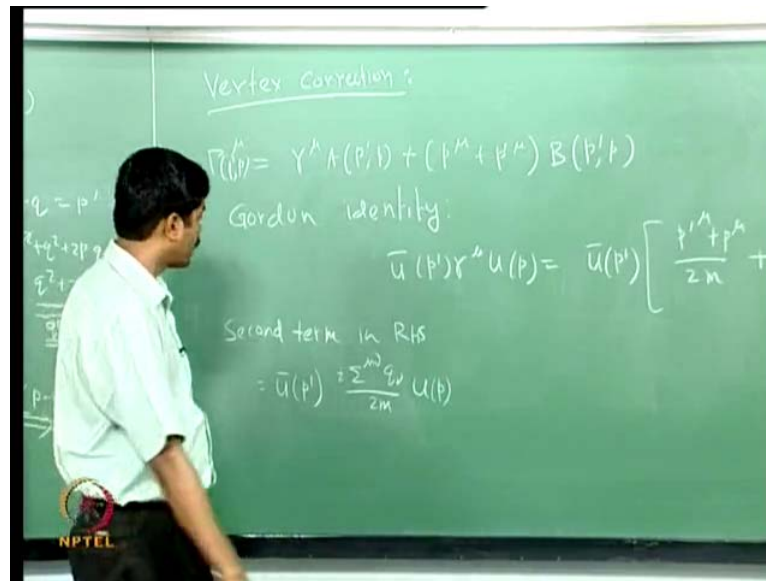 Vertex correction :
Γ^μ(p',p) = γ^μ A(p',p) + (p^μ + p'^μ) B(p',p)
Gordon identity :
ū(p') γ^μ u(p) = ū(p') [ (p'^μ + p^μ)/2m +
Second term in RHS
= ū(p') i Σ^{μν} q_ν / 2m u(p)
)
q = p'
+ q² + 2p q
q² +
p -
NPTEL